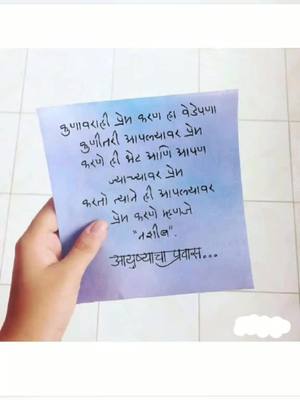 कुणावरही प्रेम करण हा वेडेपणा
कुणीतरी आपल्यावर प्रेम
करणे ही भेट आणि आपण
ज्याच्यावर प्रेम
करतो त्याने ही आपल्यावर
प्रेम करणे म्हणजे
"नशीब".
आयुष्याचा प्रवास...